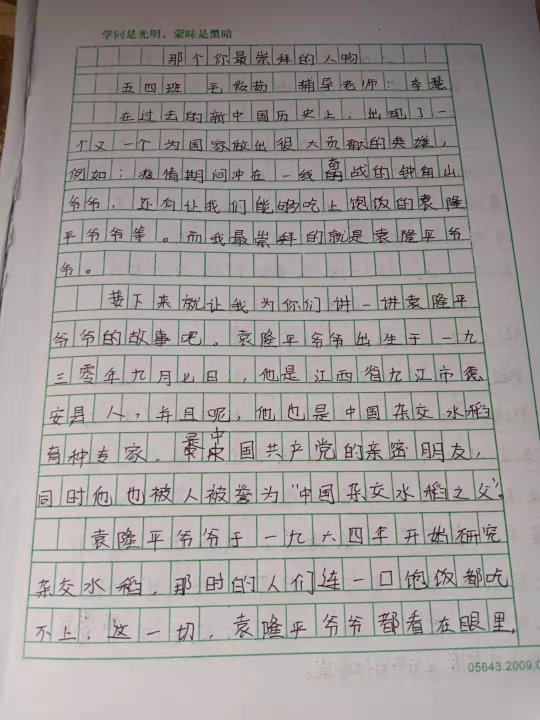 学问是光明，蒙昧是黑暗
那个你最崇拜的人物
五四班 毛 辅导老师：李慧
在过去的新中国历史上，出现了一
个又一个为国家做出很大贡献的英雄，
例如：疫情期间冲在一线奋战的钟南山
爷爷，还有让我们能够吃上饱饭的袁隆
平爷爷等。而我最崇拜的就是袁隆平爷
爷。
接下来就让我为你们讲一讲袁隆平
爷爷的故事吧。袁隆平爷爷出生于一九
三零年九月七日，他是江西省九江市德
安县人，并且呢，他也是中国杂交水稻
育种专家，是中国共产党的亲密朋友，
同时他也被人被誉为“中国杂交水稻之父”。
袁隆平爷爷于一九六四年开始研究
杂交水稻，那时的人们连一口饱饭都吃
不上，这一切，袁隆平爷爷都看在眼里，
05643.2009.0